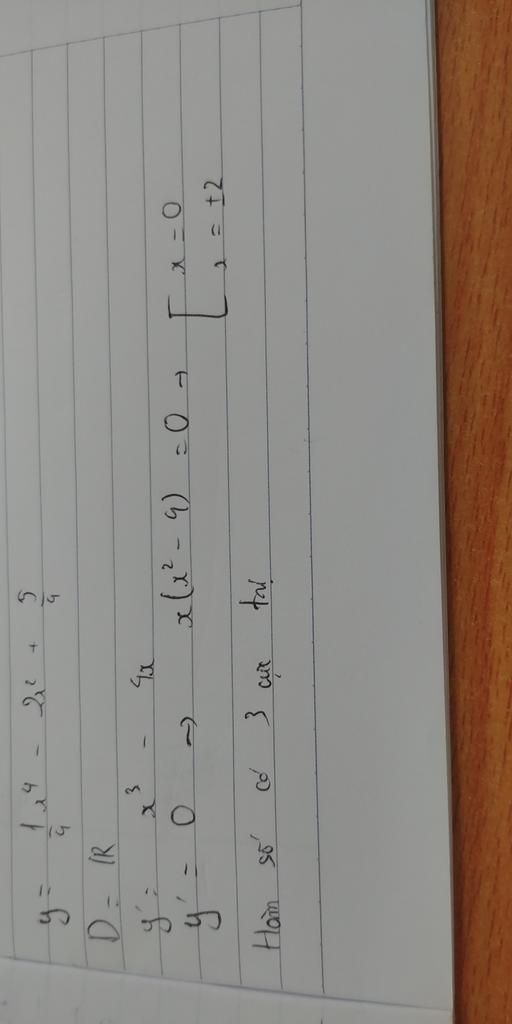 y = 1/4 x⁴ - 2x² + 5/4
D = ℝ
y' = x³ - 4x
y' = 0 → x(x² - 4) = 0 → [ x = 0
x = ±2
Hàm số có 3 cực trị